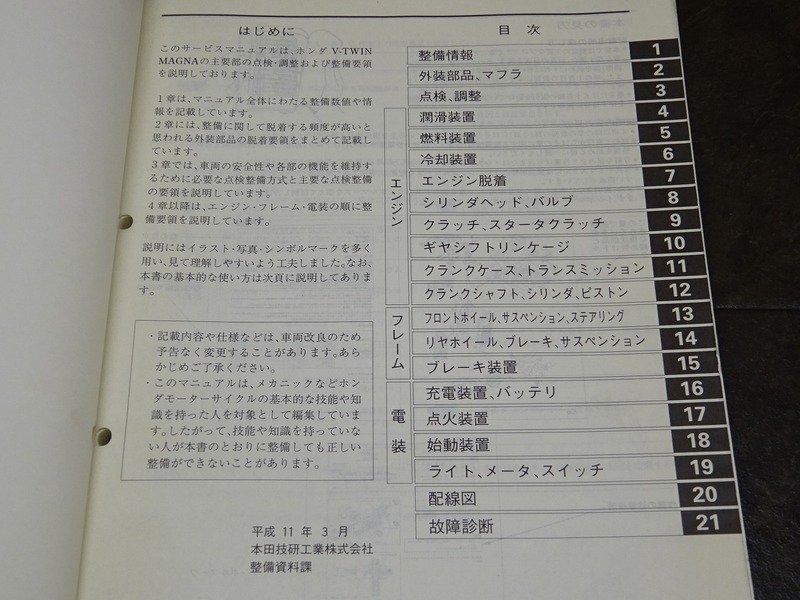 はじめに
このサービスマニュアルは、ホンダ V-TWIN
MAGNAの主要部の点検・調整および整備要領
を説明しております。
1章は、マニュアル全体にわたる整備数値や情
報を記載しています。
2章には、整備に関して脱着する頻度が高いと
思われる外装部品の脱着要領をまとめて記載し
ています。
3章では、車両の安全性や各部の機能を維持す
るために必要な点検整備方式と主要な点検整備
の要領を説明しています。
4章以降は、エンジン・フレーム・電装の順に整
備要領を説明しています。
説明にはイラスト・写真・シンボルマークを多く
用い、見て理解しやすいよう工夫しました。なお、
本書の基本的な使い方は次頁に説明してありま
す。
・記載内容や仕様などは、車両改良のため
予告なく変更することがあります。あら
かじめご了承ください。
・このマニュアルは、メカニックなどホン
ダモーターサイクルの基本的な技能や知
識を持った人を対象として編集していま
す。したがって、技能や知識を持っていな
い人が本書のとおりに整備しても正しい
整備ができないことがあります。
平成 11 年 3 月
本田技研工業株式会社
整備資料課
目 次
整備情報 1
外装部品、マフラ 2
点検、調整 3
エンジン
潤滑装置 4
燃料装置 5
冷却装置 6
エンジン脱着 7
シリンダヘッド、バルブ 8
クラッチ、スタータクラッチ 9
ギヤシフトリンケージ 10
クランクケース、トランスミッション 11
クランクシャフト、シリンダ、ピストン 12
フレーム
フロントホイール、サスペンション、ステアリング 13
リヤホイール、ブレーキ、サスペンション 14
ブレーキ装置 15
電装
充電装置、バッテリ 16
点火装置 17
始動装置 18
ライト、メータ、スイッチ 19
配線図 20
故障診断 21